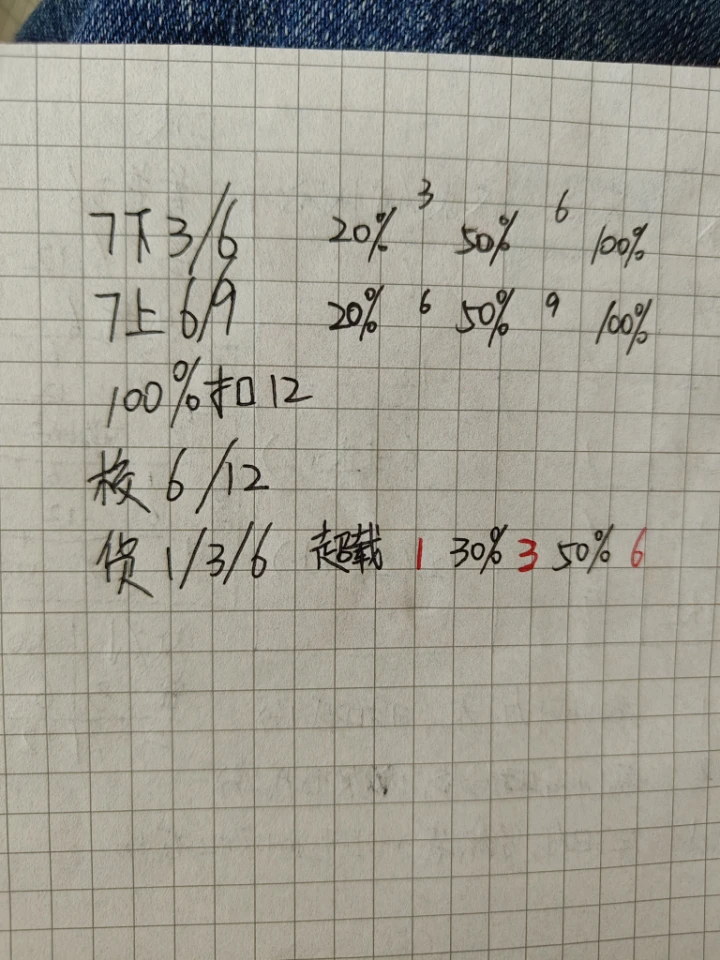 7下3/6 20% 3 50% 6 100%
7上6/9 20% 6 50% 9 100%
100%扣12
校 6/12
货 1/3/6 超载 1 30% 3 50% 6